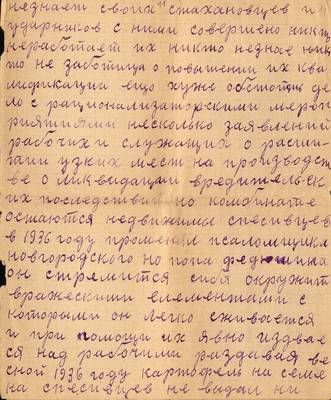 незнает своих "стахановцев и
ударников с ними совершено никто
неработает их никто незнае ник
то не заботица о повышении их ква
лификации ещо хуже обстоит де
ло с рационализаторскими мероп
риятиями несколько заявлений
рабочих и служащих о расши-
узких мест на производст
ве о ликвидации вредительск
их последствий но комбинате
остаются недвижимы спесивцев
в 1936 году променял псаломщика
новгородского но попа
он стремится себя окружит
вражескими елементами с
которыми он легко сживается
и при помощи их явно издвае
ся над рабочими раздавая ве
сной 1936 году картофель на семе
на спесивцев не видал ни